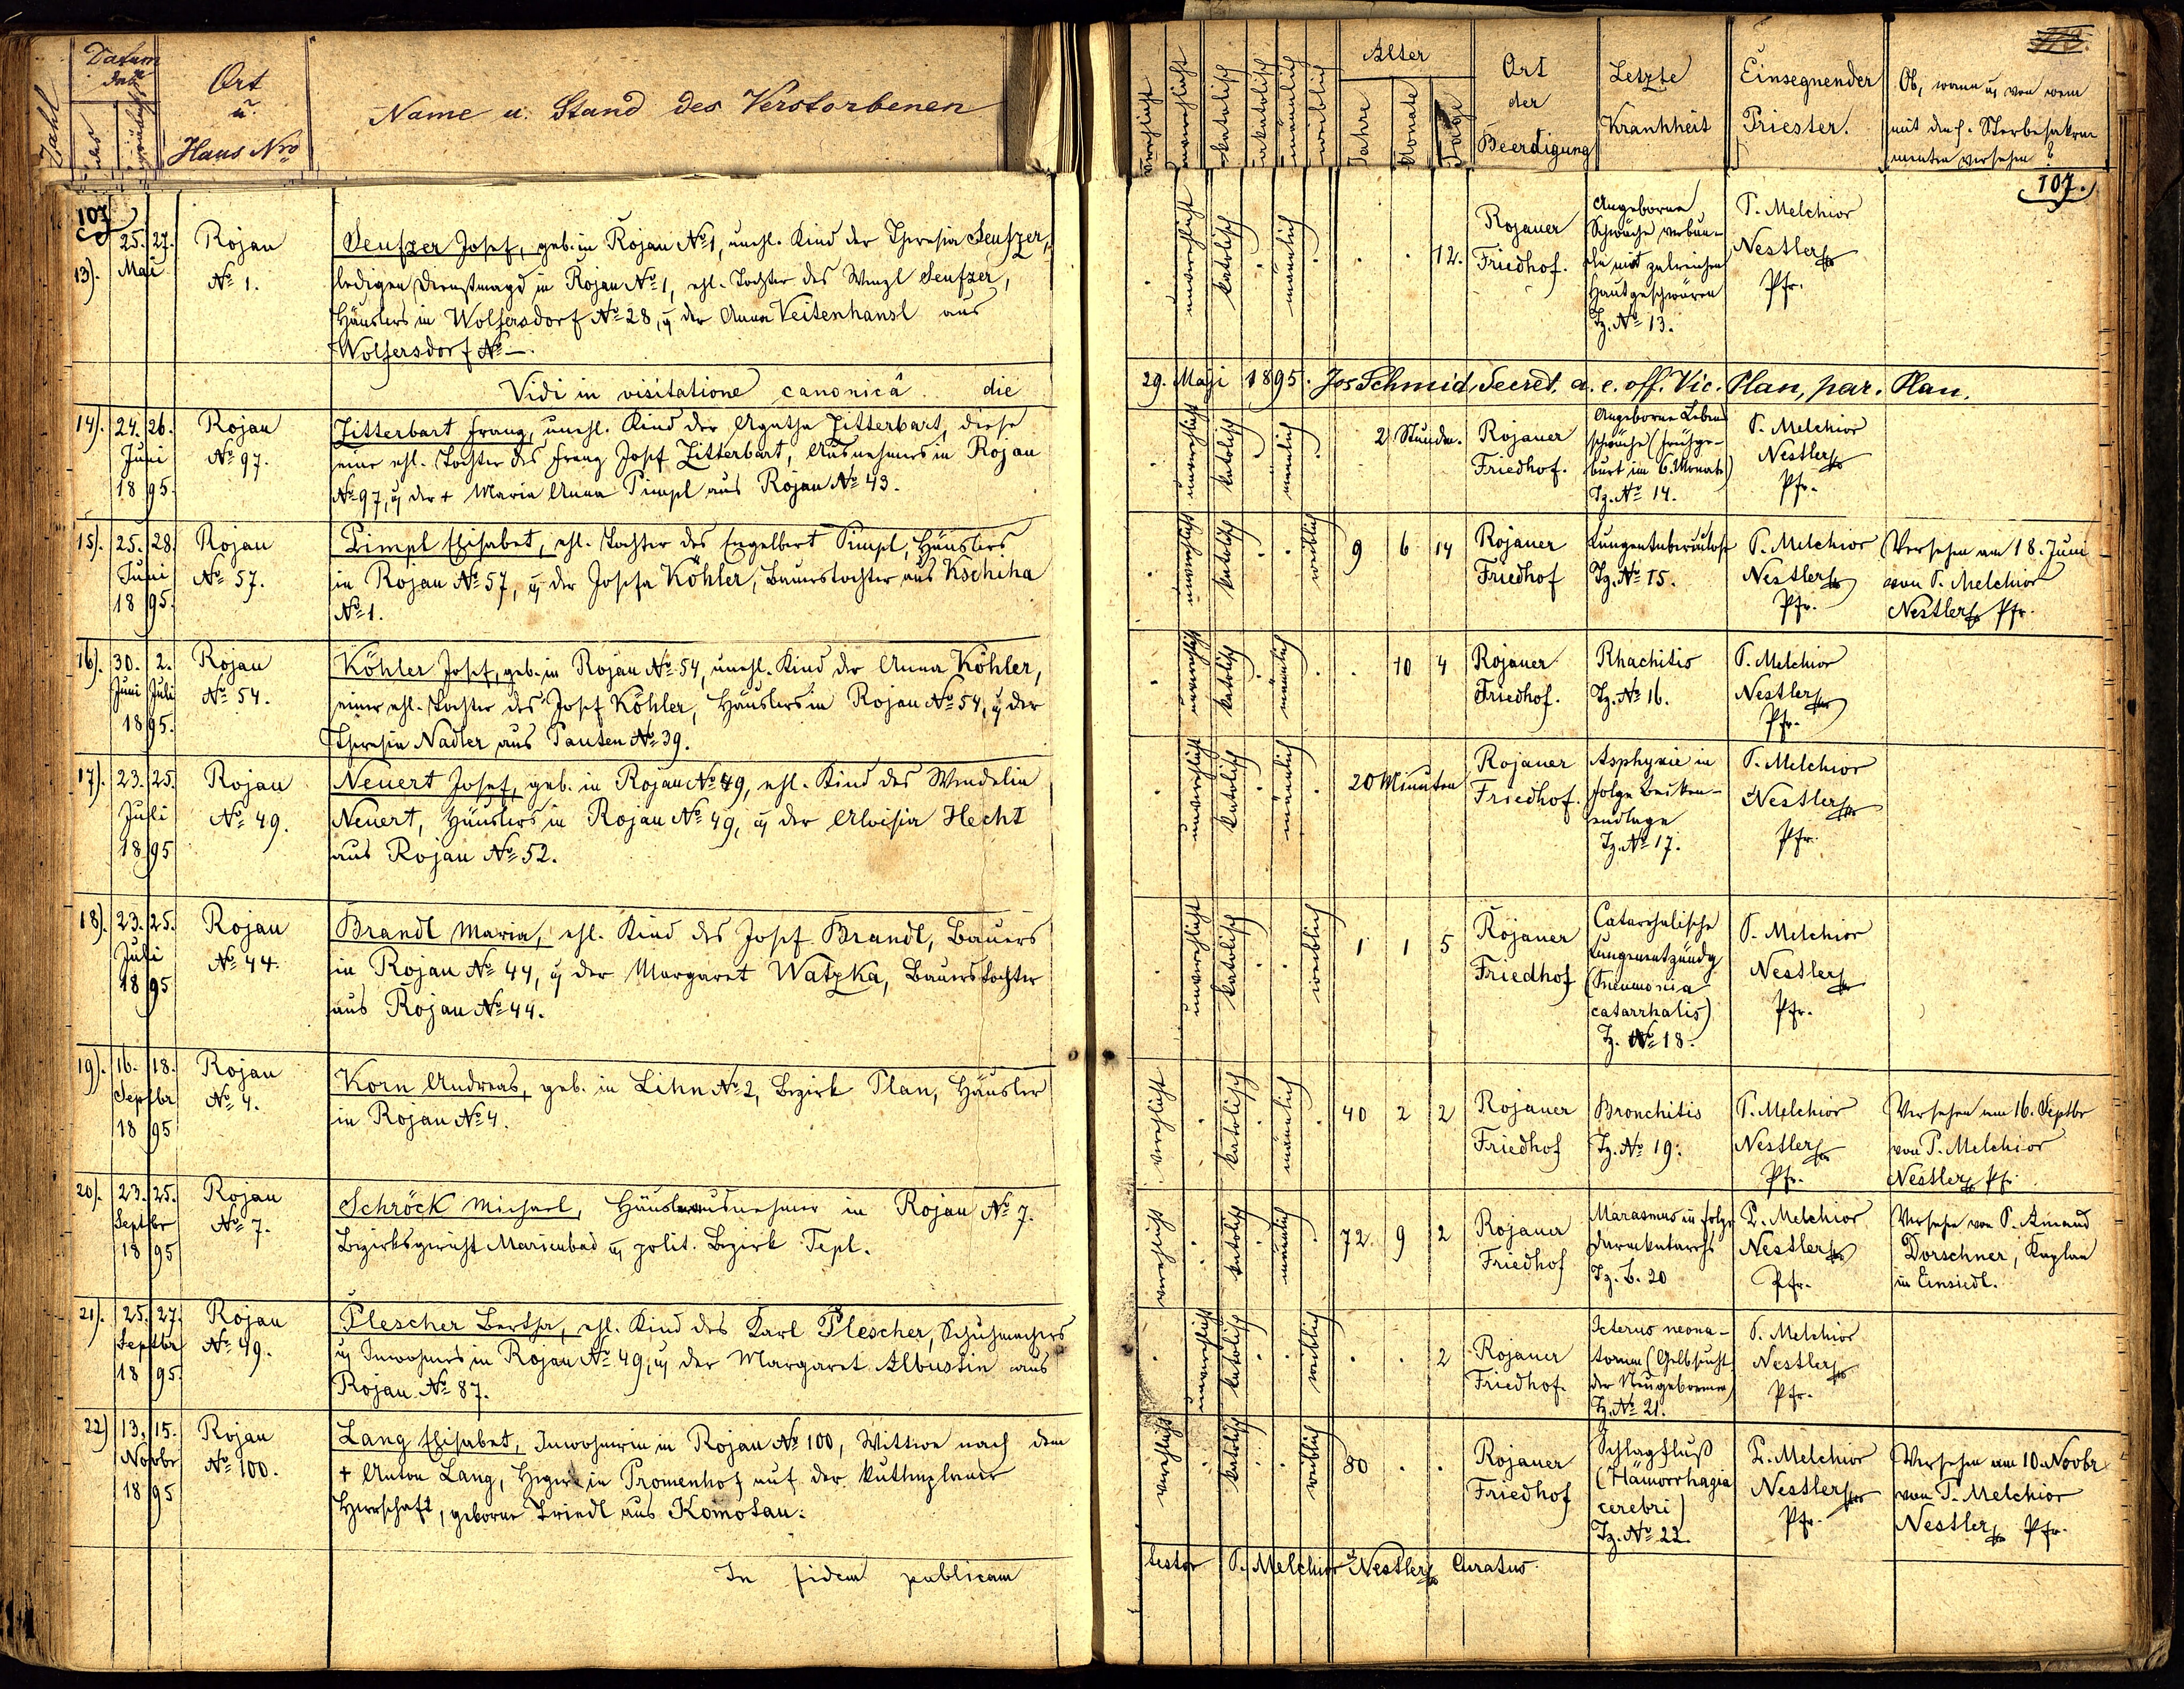 Zahl
Datum
des
Ort
u.
Haus Nro
Name u. Stand des Verstorbenen
verehlicht
unverehlicht
katolisch
akatolisch
männlich
weiblich
Alter
Jahre
Monate
Tage
Ort
der
Beerdigung
Letzte
Krankheit
Einsegnender
Priester.
Ob, wann u. von wem
mit den h. Sterbesakra-
menten versehen?
107
13).
25. 27.
Mai
Rojau
No 1.
Seufzer Josef, geb. in Rojau No 1, unehl. Kind der Theresia Seufzer,
ledigen Dienstmagd in Rojau No 1, ehl. Tochter des Wenzl Seufzer,
Häuslers in Wolfersdorf No 28, u. der Anna Veitenhansl aus
Wolfersdorf No —.
unverehlicht
katolisch
männlich
12.
Rojauer
Friedhof.
Angeborene
Schwäche verbun-
den mit zalreichen
Hautgeschwüren
Tz. No 13.
P. Melchior
Nestler
Pfr.
107.
Vidi in visitatione canonicâ die
29. Maji 1895. Jos Schmid, Secret. a. e. off. Vic. Plan, par. Plan.
14).
24. 26.
Juni
18 95.
Rojau
No 97.
Zitterbart Franz, unehl. Kind der Agatha Zitterbart, diese
eine ehl. Tochter des Franz Josef Zitterbart, Ausnehmers in Rojau
No 97, u. der + Maria Anna Pimpl aus Rojau No 43.
unverehlicht
katolisch
männlich
2 Stunden.
Rojauer
Friedhof.
Angeborne Lebens
schwäche (Frühge-
burt im 6. Monate)
Tz. No 14.
P. Melchior
Nestler
Pfr.
15).
25. 28.
Juni
18 95.
Rojau
No 57.
Pimpl Elisabet, ehl. Tochter des Engelbert Pimpl, Häuslers
in Rojau No 57, u. der Josefa Köhler, Bauerstochter aus Kschiha
No 1.
unverehlicht
katolisch
weiblich
9 6 14
Rojauer
Friedhof
Lungentuberculose
Tz. No 15.
P. Melchior
Nestler
Pfr.
Versehen am 18. Juni
von P. Melchior
Nestler Pfr.
16).
30. 2.
Juni Juli
1895.
Rojau
No 54.
Köhler Josef, geb. in Rojau No 54, unehl. Kind der Anna Köhler,
einer ehl. Tochter des Josef Köhler, Häuslers in Rojau No 54, u. der
Theresia Nadler aus Pauten No 39.
unverehlicht
katolisch
männlich
10 4
Rojauer
Friedhof.
Rhachitis
Tz. No 16.
P. Melchior
Nestler
Pfr.
17).
23. 25.
Juli
18 95
Rojau
No 49.
Neuert Josef, geb. in Rojau No 49, ehl. Kind des Wendelin
Neuert, Häuslers in Rojau No 49, u. der Aloisia Hecht
aus Rojau No 52.
unverehlicht
katolisch
männlich
20 Minuten
Rojauer
Friedhof.
Asphyxie in
folge Becken-
endlage
Tz. No 17.
P. Melchior
Nestler
Pfr.
18).
23. 25.
Juli
18 95
Rojau
No 44.
Brandl Maria, ehl. Kind des Josef Brandl, Bauers
in Rojau No 44, u. der Margaret Watzka, Bauerstochter
aus Rojau No 44.
unverehlicht
katolisch
weiblich
1 1 5
Rojauer
Friedhof
Catarrhalische
Lungenentzündg
(Pneumonia
catarrhalis)
Tz. No 18.
P. Melchior
Nestler
Pfr.
19).
16. 18.
Septbr
18 95
Rojau
No 4.
Korn Andreas, geb. in Lihn No 2, Bezirk Plan, Häusler
in Rojau No 4.
verehlicht
katolisch
männlich
40 2 2
Rojauer
Friedhof
Bronchitis
Tz. No 19.
P. Melchior
Nestler
Pfr.
Versehen am 16. Septbr
von P. Melchior
Nestler Pfr.
20).
23. 25.
Septbr
18 95
Rojau
No 7.
Schröck Michael, Häuslerausnehmer in Rojau No 7.
Bezirksgericht Marienbad u. polit. Bezirk Tepl.
verehlicht
katolisch
männlich
72. 9 2
Rojauer
Friedhof
Marasmus in folge
Darmkatarrhs
Tz. Z. 20
P. Melchior
Nestler
Pfr.
Versehn von P. Amand
Dorschner, Kaplan
in Einsiedl.
21).
25. 27.
Septbr
18 95.
Rojau
No 49.
Plescher Bertha, ehl. Kind des Karl Plescher, Schuhmachers
u. Inwohners in Rojau No 49, u. der Margaret Albustin aus
Rojau No 87.
unverehlicht
katolisch
weiblich
2
Rojauer
Friedhof.
Icterus neona-
torum (Gelbsucht
der Neugebornen)
Tz. No 21.
P. Melchior
Nestler
Pfr.
22)
13. 15.
Novbr
18 95
Rojau
No 100.
Lang Elisabet, Inwohnerin in Rojau No 100, Wittwe nach dem
+ Anton Lang, Heger in Promenhof auf der Kuttenplaner
Herrschaft, geborne Friedl aus Komotau.
verehlicht
katolisch
weiblich
80
Rojauer
Friedhof
Schlagfluß
(Hämorrhagia
cerebri)
Tz. No 22.
P. Melchior
Nestler
Pfr.
Versehen am 10. Novbr
von P. Melchior
Nestler Pfr.
In fidem publicam
testor P. Melchior Nestler Curatus